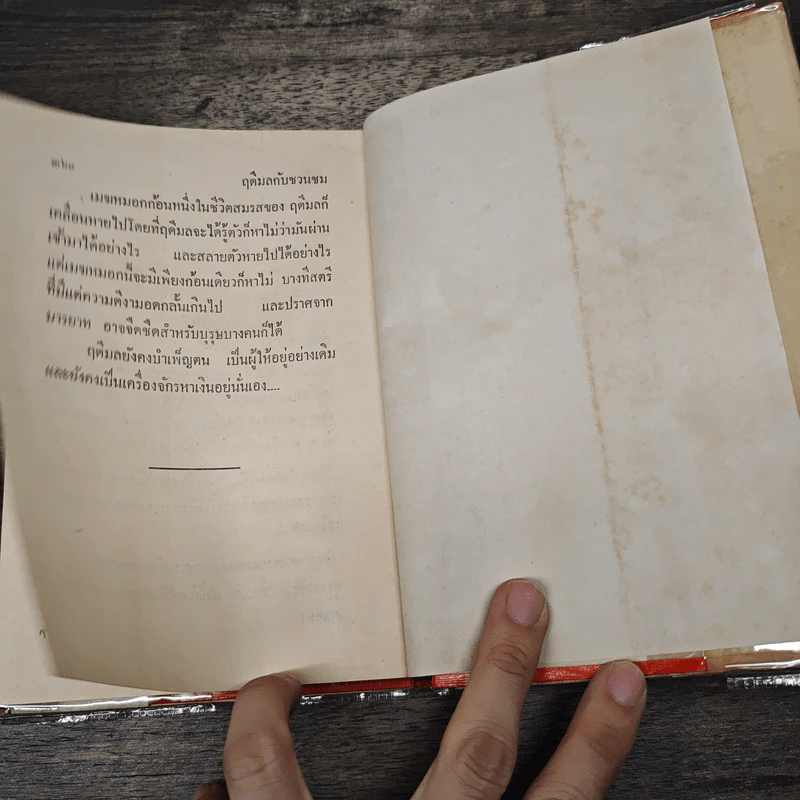 ฤดีมลกับชวนชม
เมฆหมอกก้อนหนึ่งในชีวิตสมรสของ ฤดีมลก็
เคลื่อนหายไปโดยที่ฤดีมลจะได้รู้ตัวก็หาไม่ว่ามันผ่าน
เข้ามาได้อย่างไร และสลายตัวหายไปได้อย่างไร
แต่เมฆหมอกนี้จะมีเพียงก้อนเดียวก็หาไม่ บางทีสตรี
ที่มีแต่ความดีงามอดกลั้นเกินไป และปราศจาก
มารยาท อาจจืดชืดสำหรับบุรุษบางคนก็ได้
ฤดีมลยังคงบำเพ็ญตน เป็นผู้ให้อยู่อย่างเดิม
และยังคงเป็นเครื่องจักรหาเงินอยู่นั่นเอง....